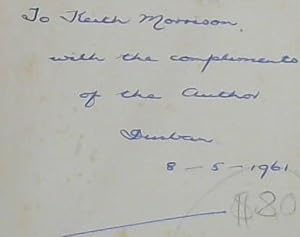 To Keith Morrison,
with the compliments
of the Author
Durban
8 - 5 - 1961
80